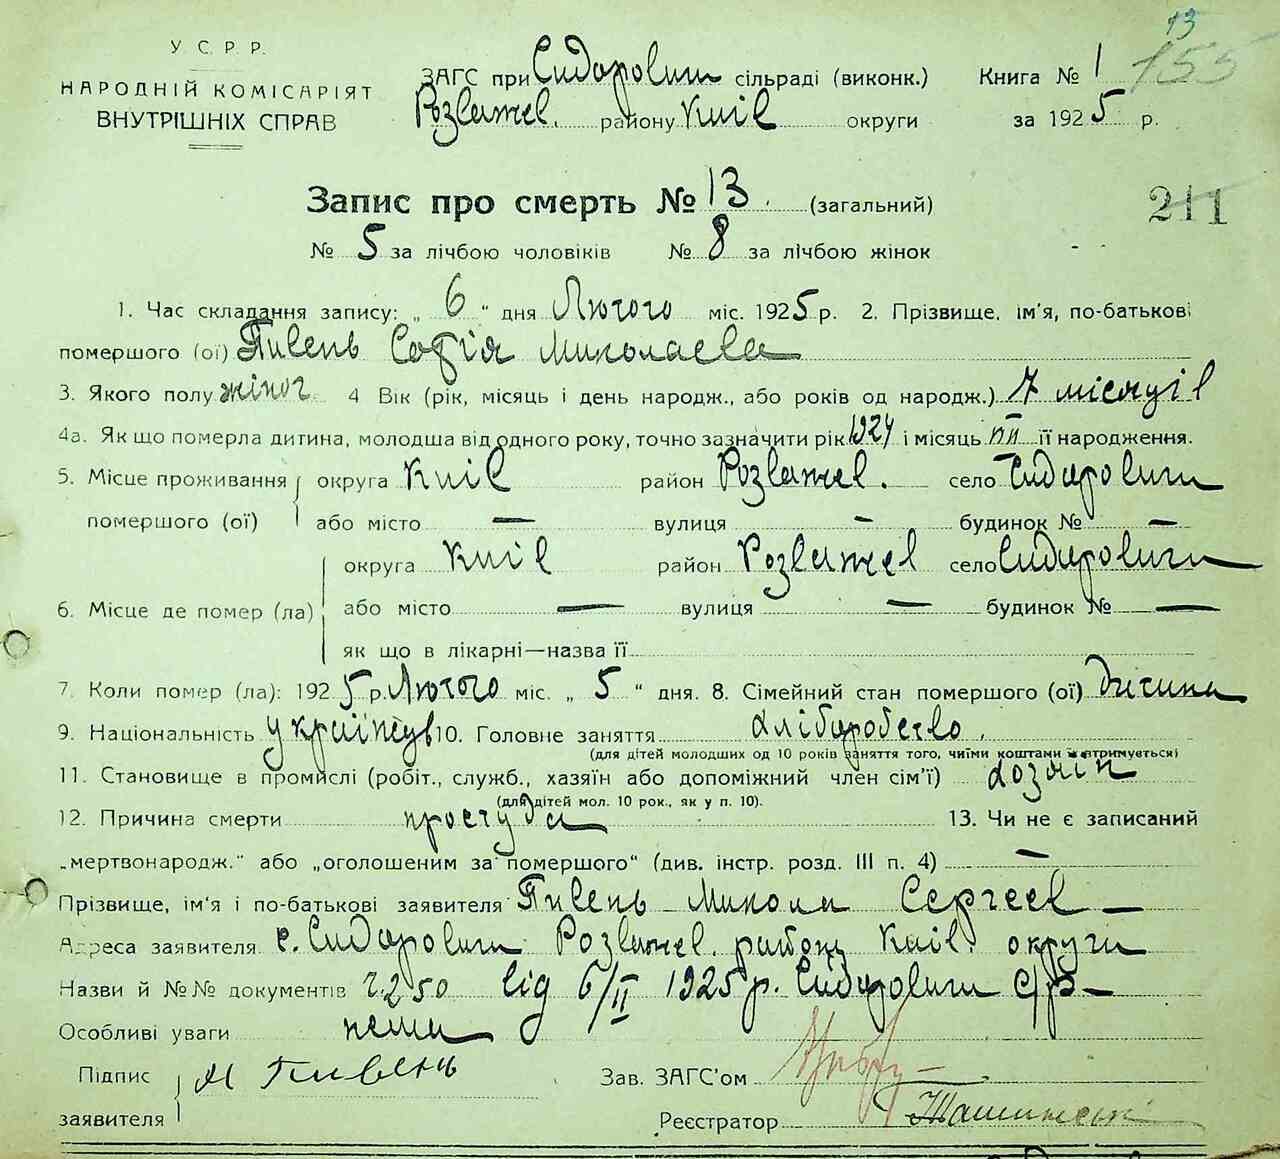 13
155
У. С. Р. Р.
НАРОДНІЙ КОМІСАРІЯТ
ВНУТРІШНІХ СПРАВ
ЗАГС при Сидоровичи сільраді (виконк.)
Розважев. району Київ округи
Книга № 1
за 1925 р.
Запис про смерть № 13. (загальний)
211
№ 5 за лічбою чоловіків № 8 за лічбою жінок
1. Час складання запису: „ 6 “ дня Лютого міс. 1925 р. 2. Прізвище, ім'я, по-батькові
помершого (ої) Пивень Софія Миколаєва
3. Якого полу жіноч 4 Вік (рік, місяць і день народж., або років од народж.) 7 місяців
4а. Як що померла дитина, молодша від одного року, точно зазначити рік 1924 і місяць VII її народження.
5. Місце проживання округа Київ район Розважев. село Сидоровичи
помершого (ої) або місто — вулиця — будинок № —
округа Київ район Розважев село Сидоровичи
6. Місце де помер (ла) або місто — вулиця — будинок № —
як що в лікарні—назва її
7. Коли помер (ла): 1925 р. Лютого міс. „ 5 “ дня. 8. Сімейний стан помершого (ої) дитина
9. Національність 10. Головне заняття хліборобство.
(для дітей молодших од 10 років заняття того, чиїми коштами їх утримується)
11. Становище в промислі (робіт., служб., хазяїн або допоміжний член сім'ї) хозяїн
(для дітей мол. 10 рок., як у п. 10).
12. Причина смерти простуда 13. Чи не є записаний
„мертвонародж.“ або „оголошеним за помершого“ (див. інстр. розд. III п. 4) —
Прізвище, ім'я і по-батькові заявителя Пивень Микола Сергеєв —
Адреса заявителя с. Сидоровичи Розважев. району Київ. округи
Назви й №№ документів ч. 250 від 6/II 1925 р. Сидоровичи с/р —
Особливі уваги нема
Підпис
заявителя М Пивень
Зав. ЗАГС'ом
Реєстратор